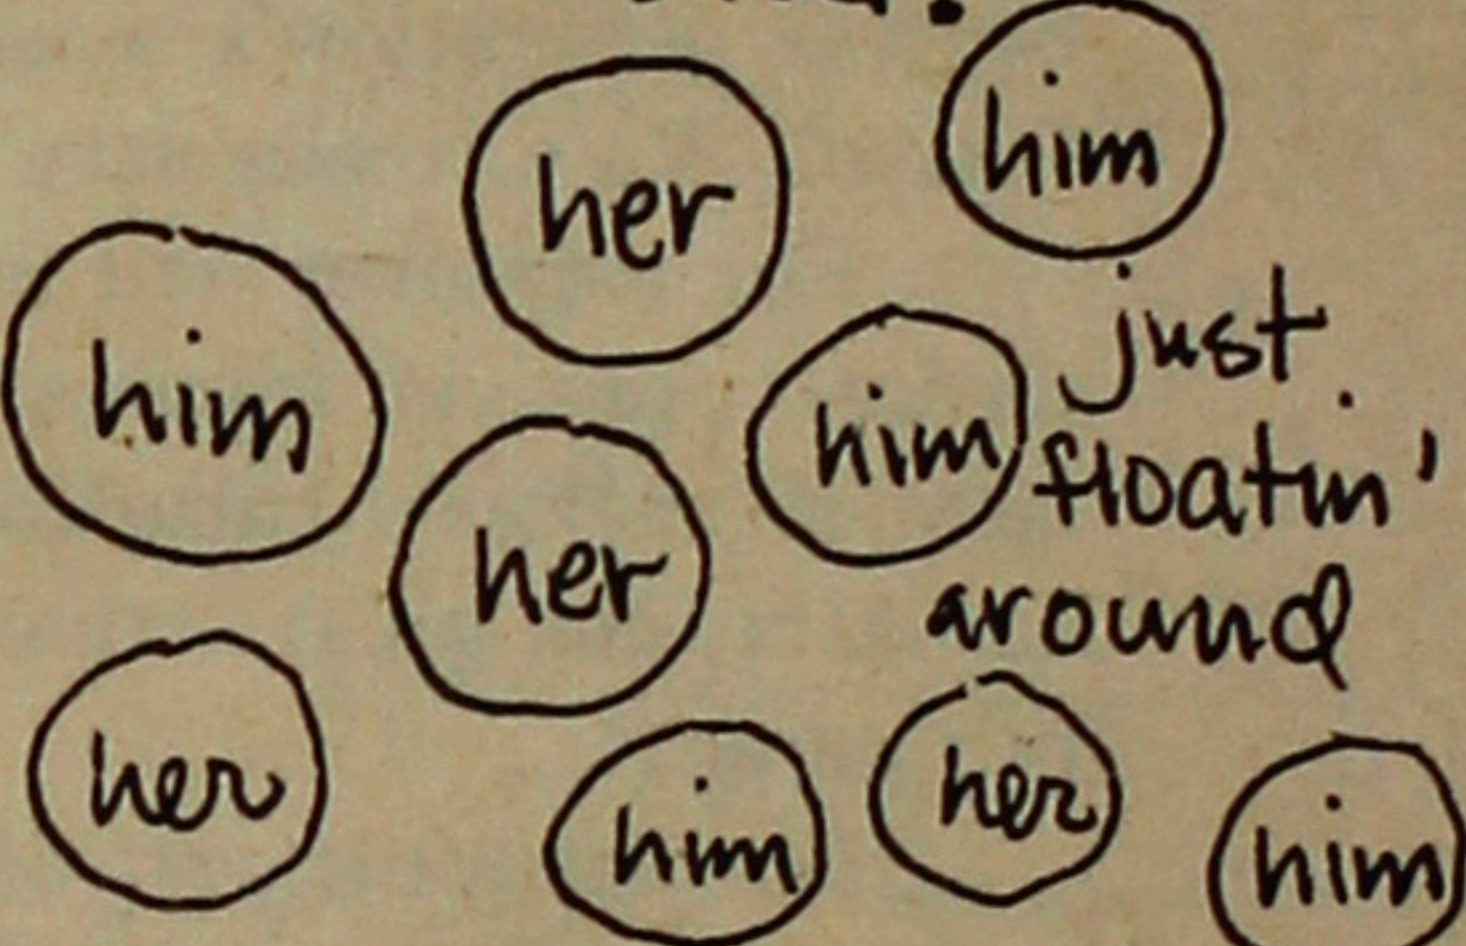 her
him
him
him
just
floatin'
her
around
her
him
her
him